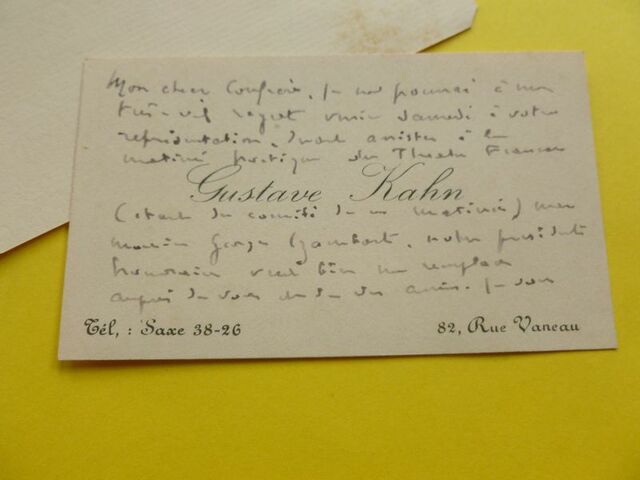 Mon cher Confrère, Je ne pourrai à mon
très vif regret venir samedi à votre
représentation, devant assister à la
matinée poétique du Théatre Francais
Gustave Kahn
(étant du comité de ces matinées) mon
ami George, notre président
honoraire veut bien me remplacer
auprès de vous et de vos amis. Je vous
Tél, : Saxe 38-26
82, Rue Vaneau